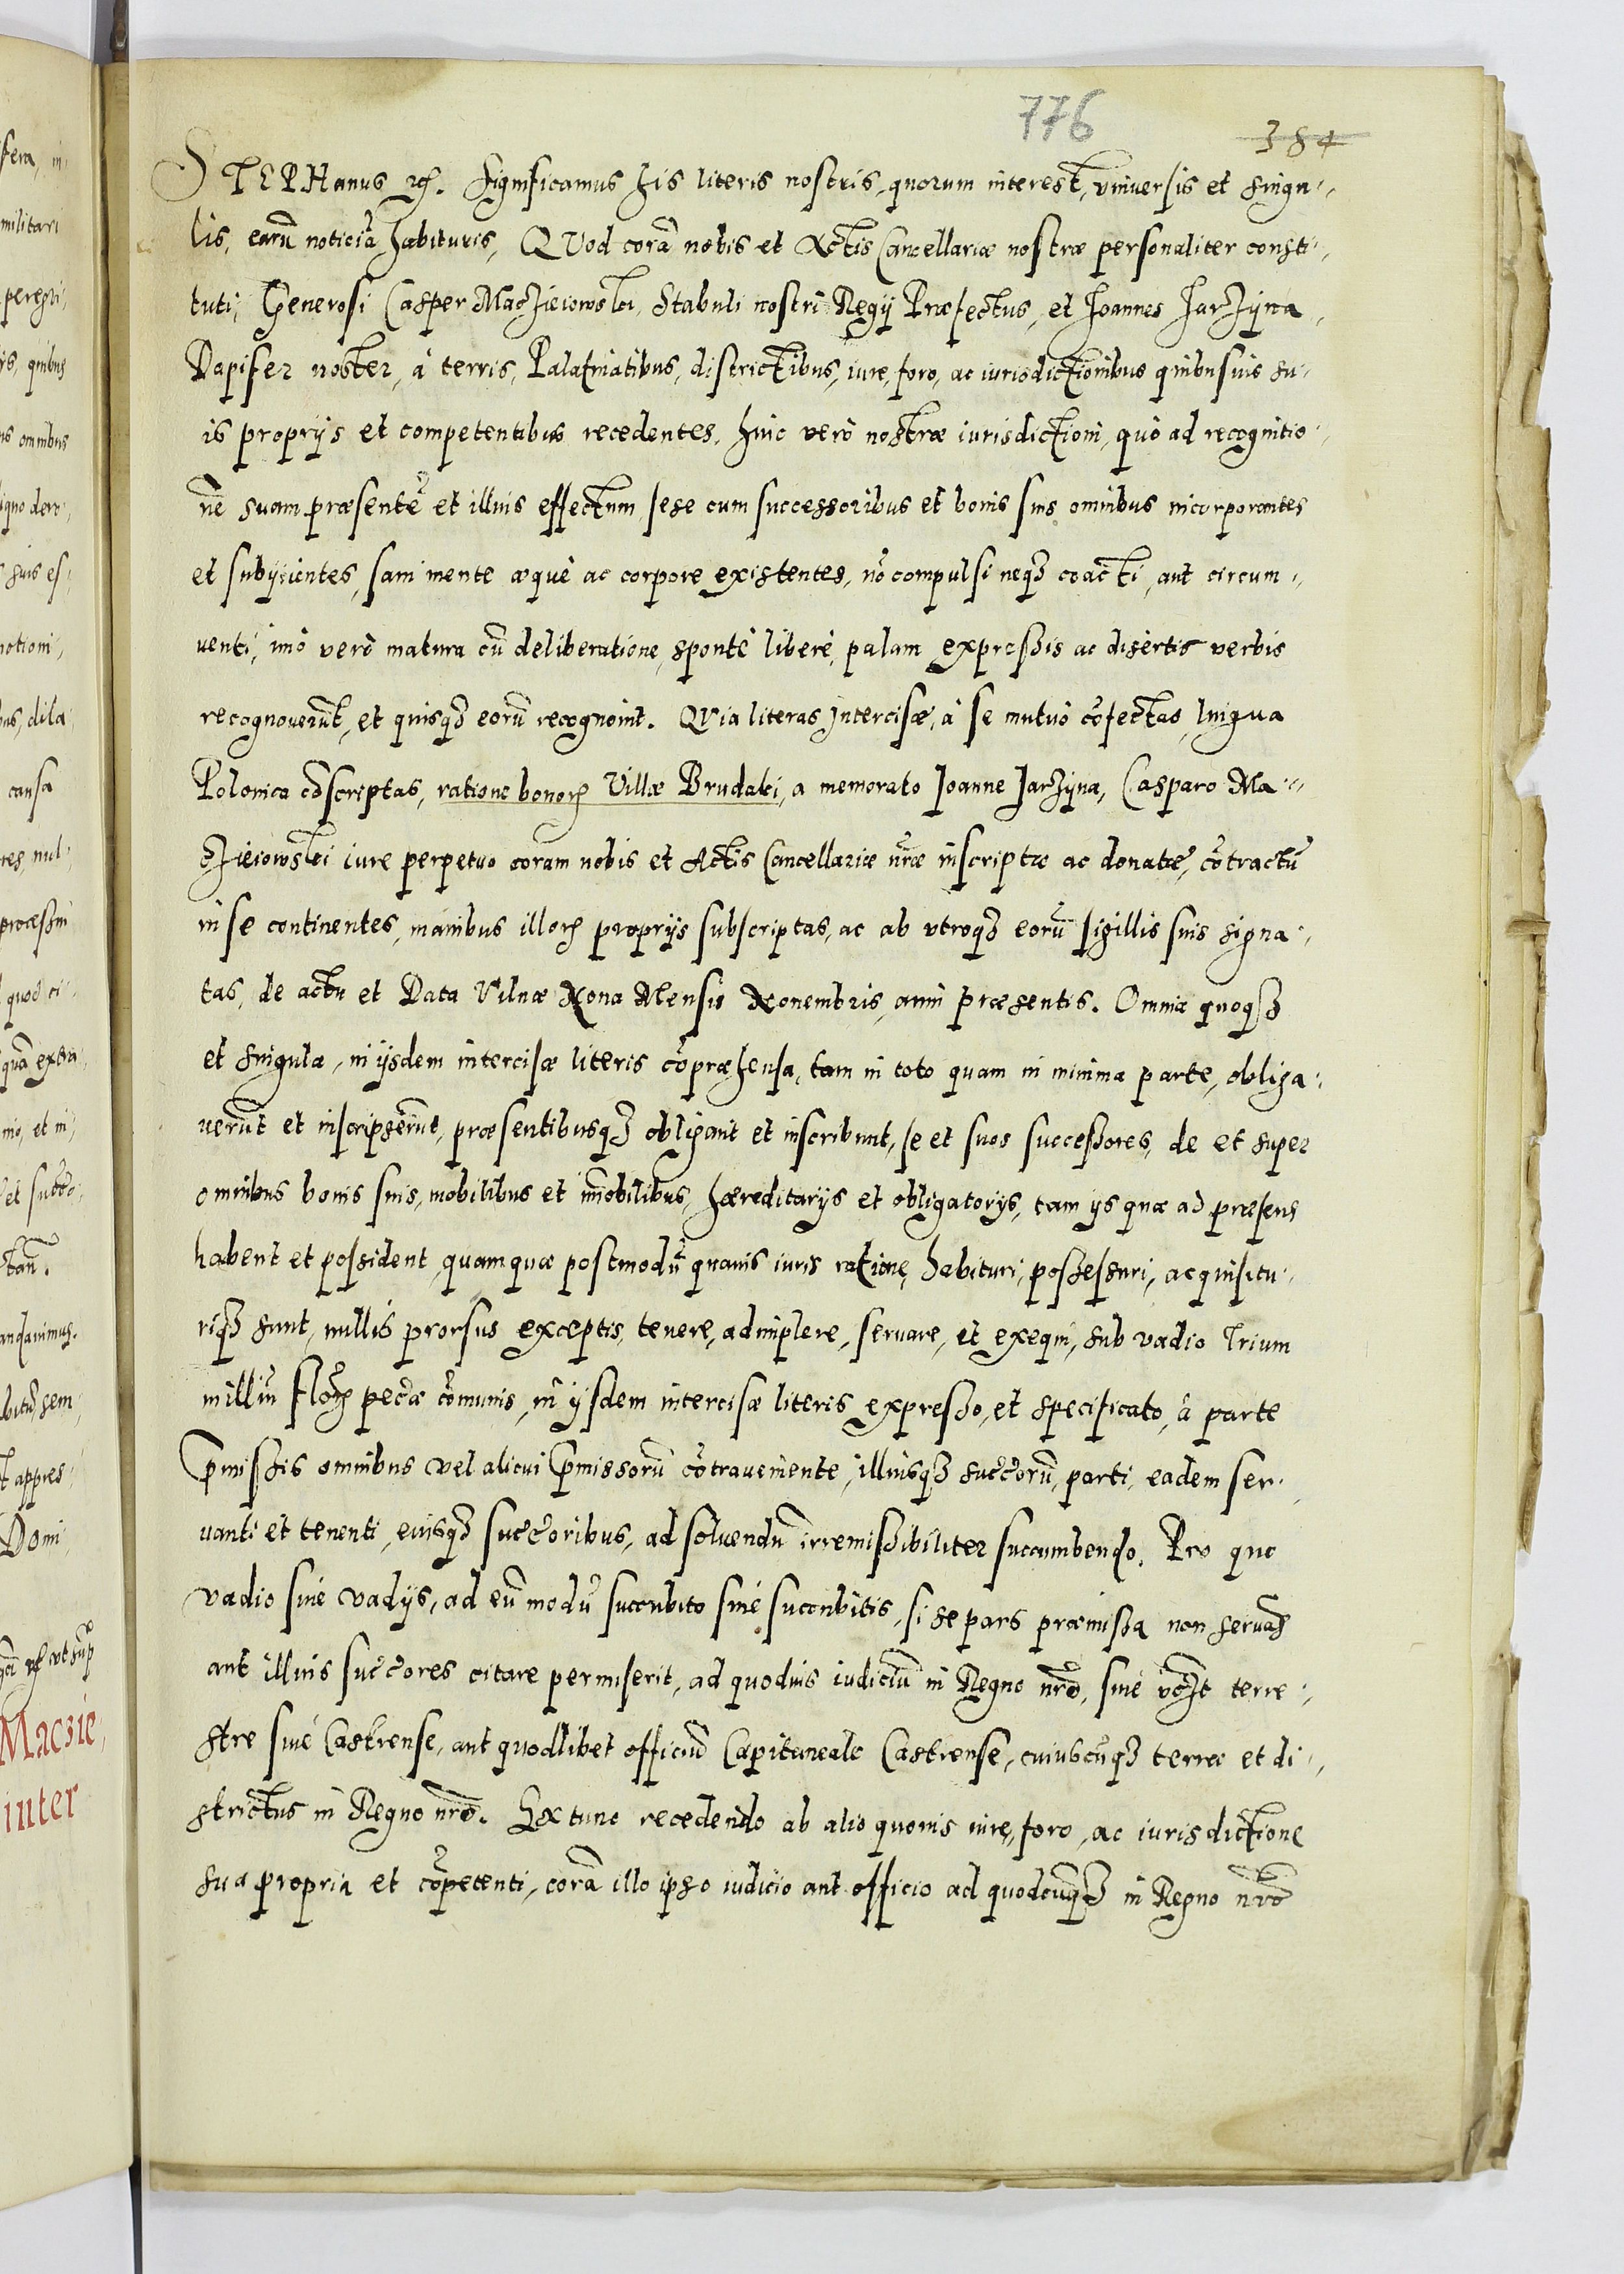 776
384
STEPHanus etc. Significamus his literis nostris, quorum interest, vniversis et singu-
lis, earũ noticiã habituris, QVod corã nobis et Actis Cancellariæ nostræ personaliter consti-
tuti, Generosi Casper Maczieiowski, Stabuli nostri Regij Præfectus, et Joannes Jarzijna,
Dapifer noster, à terris, Palatinatibus, districtibus, iure, foro, ac iurisdictionibus quibusuis su-
is proprijs et competentibus recedentes, huic verò nostræ iurisdictioni, quò ad recognitio-
nẽ suam præsentẽ et illius effectum sese cum successoribus et bonis suis omnibus incorporantes
et subijcientes, sani mente æquè ac corpore existentes, nõ compulsi neqꝫ coacti, aut circum-
uenti, imò verò matura cũ deliberatione, spontè liberè, palam expressis ac disertis verbis
recognoverũt, et quisqꝫ eorũ recognoũit. QVia literas Intercisæ, à se mutuò cõfectas, lingua
Polonica cõscriptas, ratione bonorꝫ Villæ Brudaki, a memorato Joanne Jarzijna, Casparo Ma-
czieiowski iure perpetuo coram nobis et Actis Cancellariæ nr̃æ inscriptæ ac donatæ, cõtractũ
in se continentes, manibus illorꝫ proprijs subscriptas, ac ab vtroqꝫ eorũ sigillis suis signa-
tas, de actu et Data Vilnæ Nona Mensis Nouembris, anni præsentis. Omnia quoqꝫ
et singula, in ijsdem intercisæ literis cõpræhensa, tam in toto quam in minima parte, obliga-
uerũt et inscripserũt, præsentibusqꝫ obligant et inscribunt, se et suos successores, de et super
omnibus bonis suis, mobilibus et im̃obilibus, hæreditarijs et obligatorijs, tam ijs quæ ad præsens
habent et possident, quam quæ postmodũ quauis iuris ratione, habituri, possessuri, acquisitu-
riqꝫ sunt, nullis prorsus exceptis, tenere, adimplere, servare, et exequi, sub vadio Trium
milliũ Florꝫ pec̃æ cõmunis, in ijsdem intercisæ literis expresso, et specificato, à parte
p̃missis omnibus vel alicui p̃missorũ cõtraveniente, illiusqꝫ succ̃orũ, parti, eadem ser-
vanti et tenenti, eiusqꝫ succ̃oribus, ad soluendũ irremissibiliter succumbendo. Pro quo
vadio siue vadijs, ad eũ modũ succubito siue succubitis, si se pars præmissa non servãs
aut illius succ̃ores citare permiserit, ad quoduis iudiciũ in Regno nr̃o, siue terre-
stre siue Castrense, aut quodlibet officiũ Capitaneale Castrense, cuiuscũqꝫ terræ et di-
strictus in Regno nr̃o. Ex tunc recedendo ab alio quouis iure, foro, ac iurisdictione
sua propria et cõpetenti, corã illo ipso iudicio aut officio ad quodcũqꝫ in Regno nr̃o